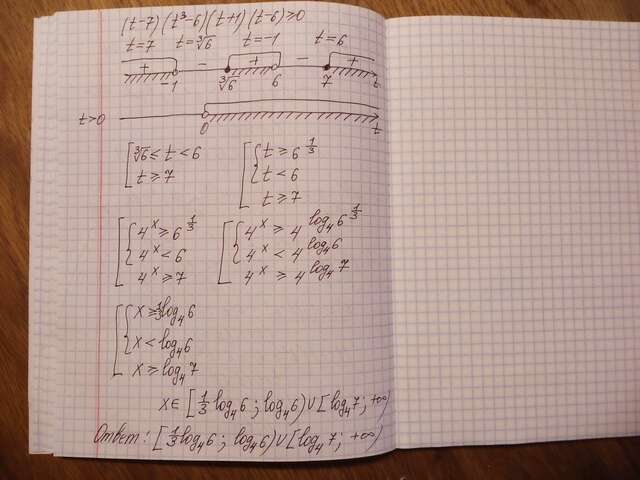 (t-7)(t³-6)(t+1)(t-6)≥0
t=7 t=∛6 t=-1 t=6
+ - + - +
-1 ∛6 6 7 t
t>0
0 t
[∛6≤t<6 [{t≥6^{1/3}
t≥7 t<6
t≥7
[{4^x≥6^{1/3} [{4^x≥4^{log₄6^{1/3}}
4^x<6 4^x<4^{log₄6}
4^x≥7 4^x≥4^{log₄7}
[{x≥⅓log₄6
x<log₄6
x≥log₄7
x∈[⅓log₄6; log₄6)∪[log₄7; +∞)
Ответ: [⅓log₄6; log₄6)∪[log₄7; +∞)